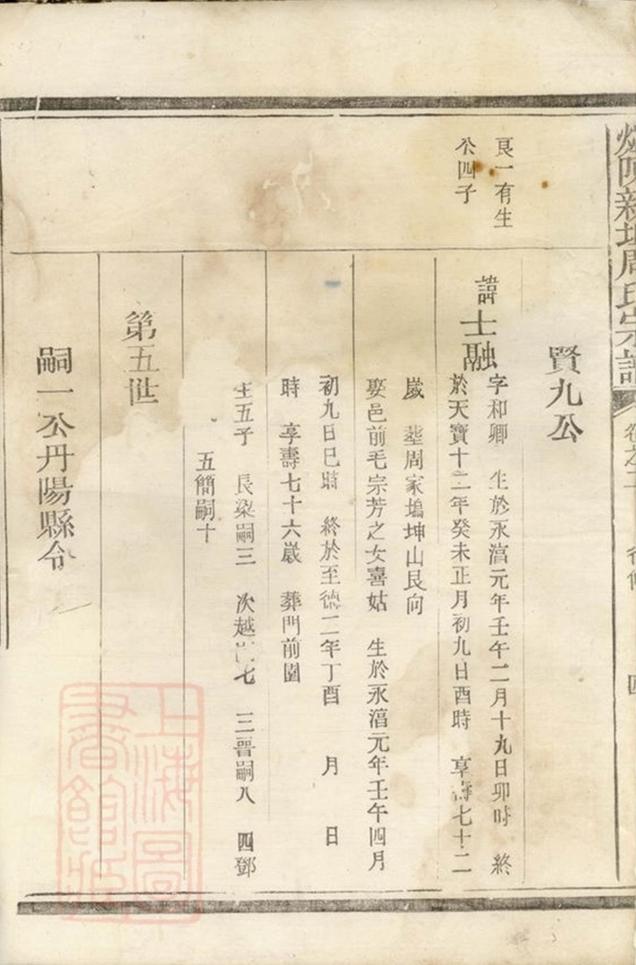 新周氏宗譜 卷之二
良一有生
公四子
賢九公
諱士融
字和卿 生於永淳元年壬午二月十九日卯時 終
於天寶十二年癸未正月初九日酉時 享壽七十二
歲 塟周家塢坤山艮向
娶邑前毛宗芳之女喜姑 生於永淳元年壬午四月
初九日巳時 終於至德二年丁酉 月 日
時 享壽七十六歲 葬門前園
生五子 長染嗣三 次越嗣七 三晋嗣八 四鄧
五簡嗣十
第五世
嗣一公丹陽縣令
上海圖書館藏